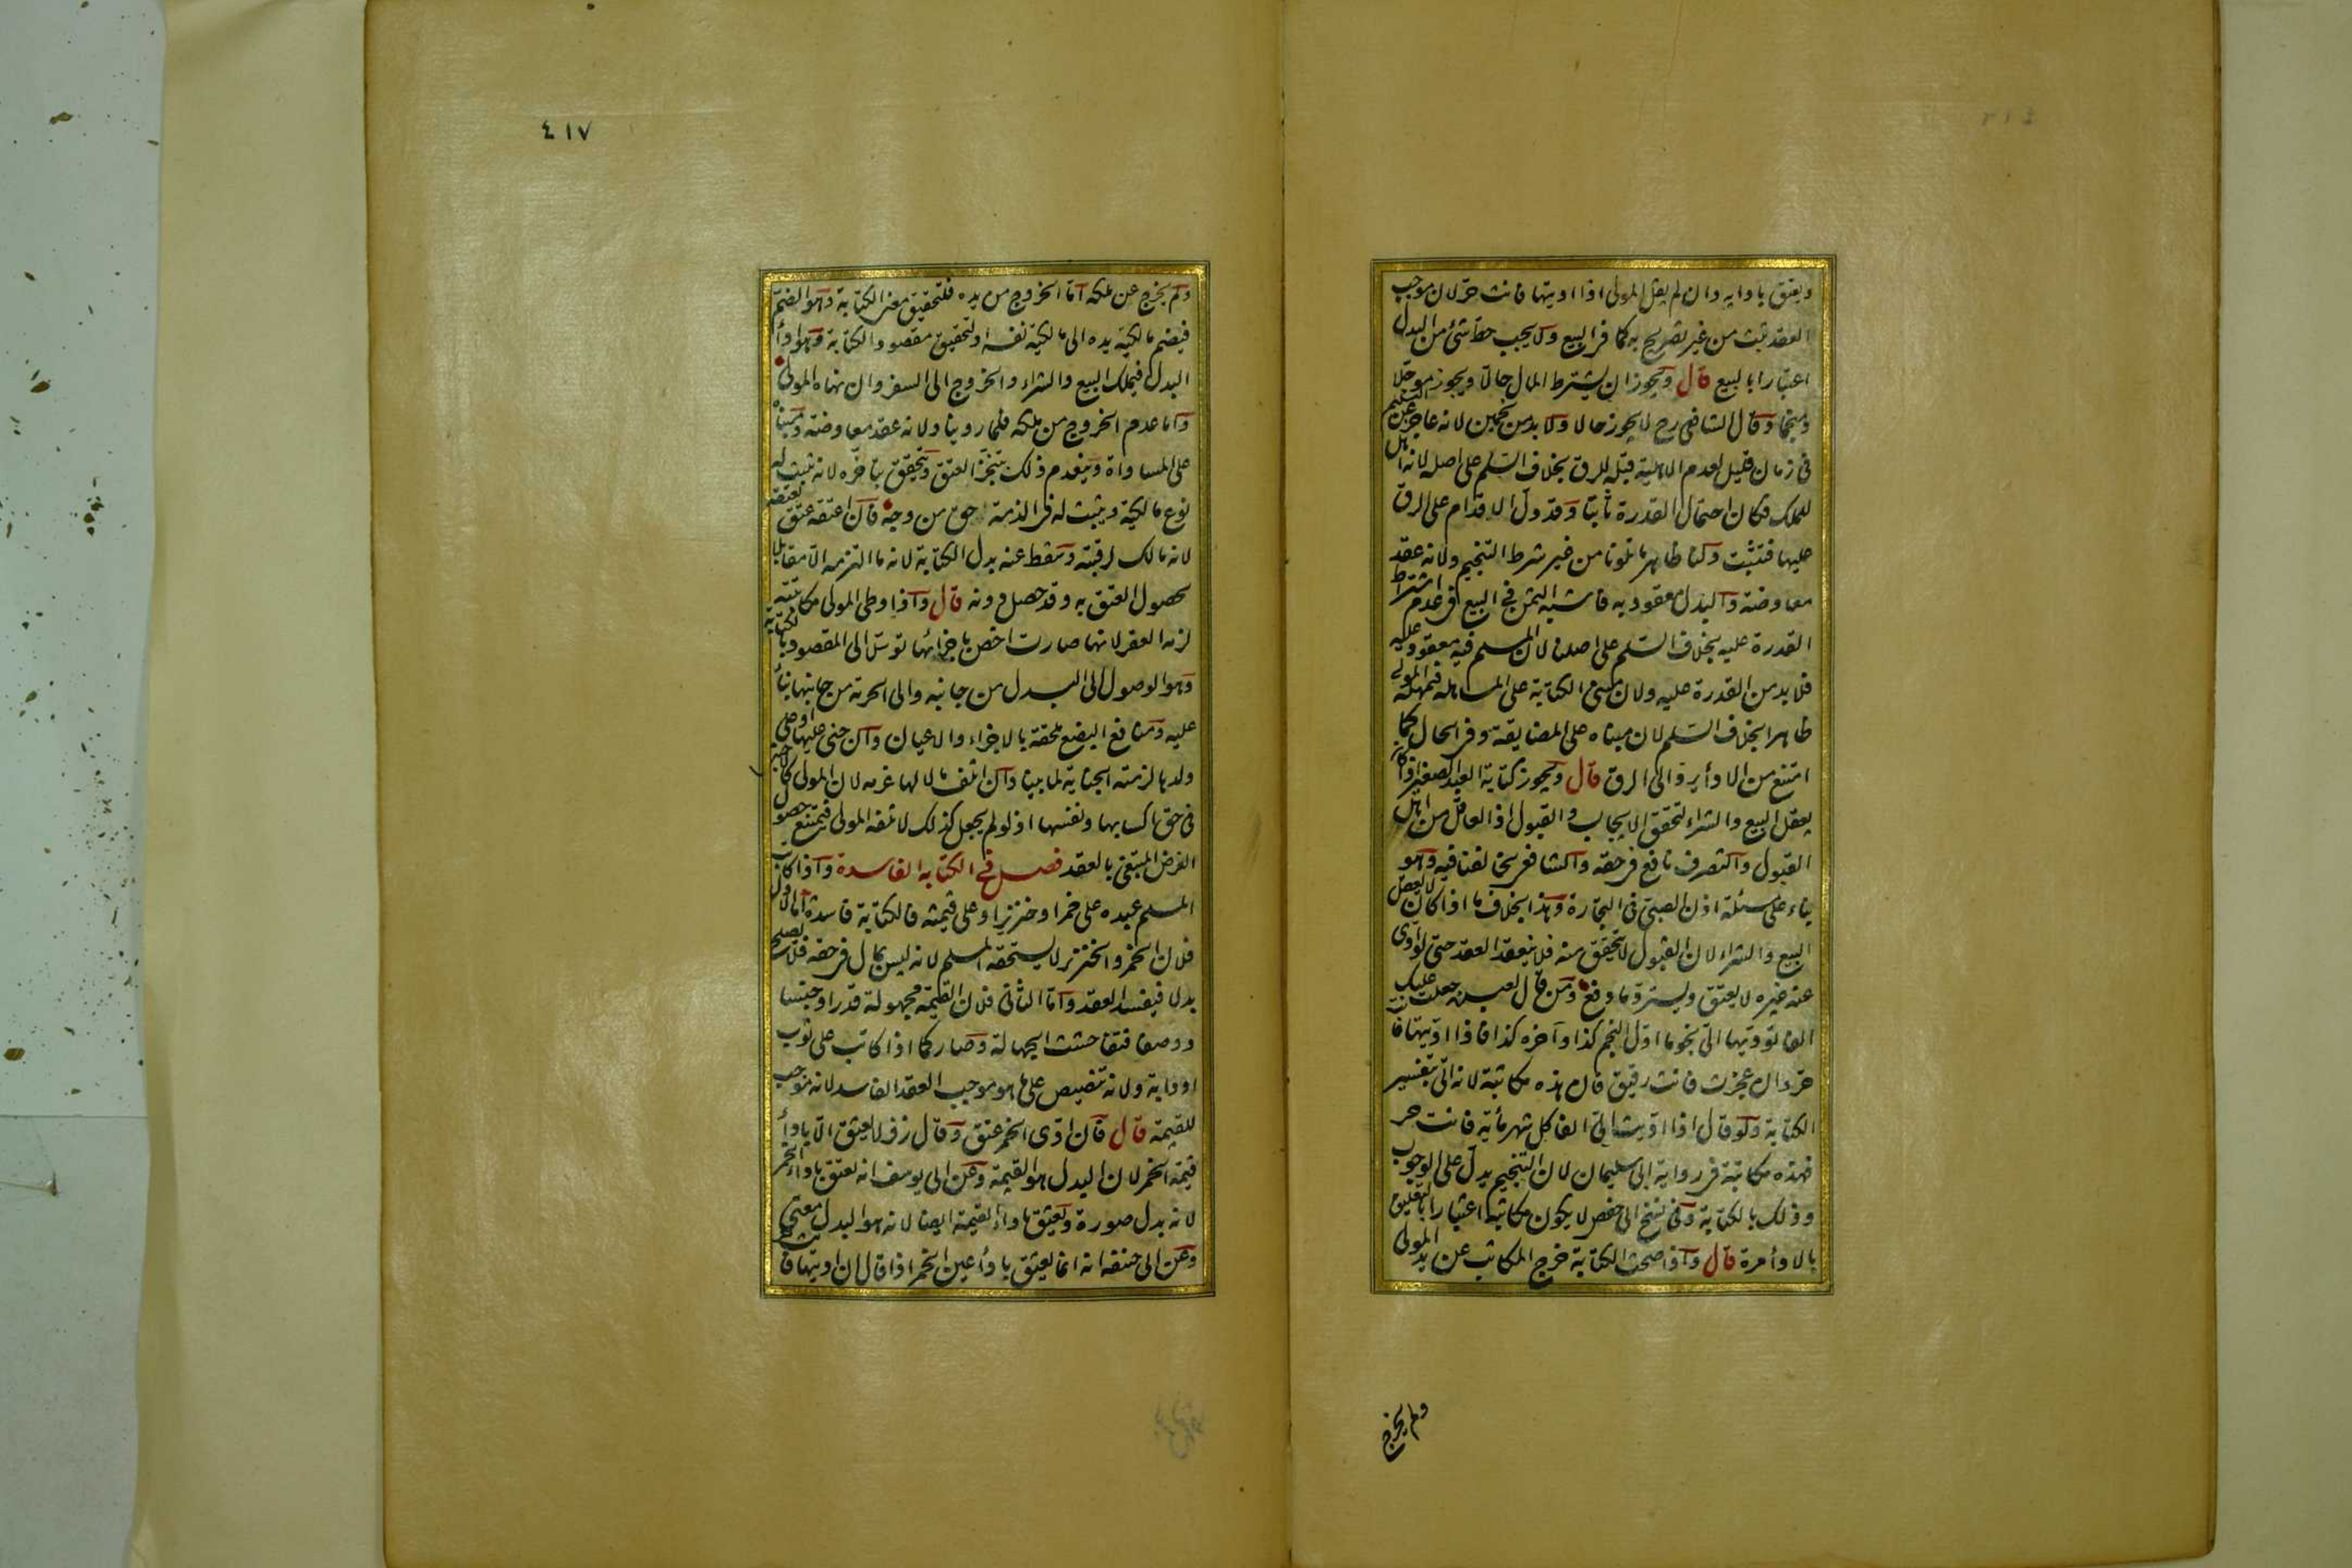 ويعتق بادايه وان لم يقل المولى اذا اديتها فانت حر لان موجب
العقد يثبت من غير تصريح به كما في البيع ولا يجب حط شئ من البدل
اعتبارا بالبيع قال ويجوز ان يشترط المال حالا ويجوز موجلا
ومنجما وقال الشافعى رح لا يجوز حالا ولا بد من نجمين لانه عاجز عن التسليم
فى زمان قليل لعدم الاهلية قبله للرق بخلاف السلم على اصله لانه اهل
للملك فكان احتمال القدرة ثابتا وقد دل الاقدام على الرق
عليها فتثبت ولنا ظاهر ما تلونا من غير شرط التنجيم ولانه عقد
معاوضة والبدل معقود به فاشبه الثمن فى البيع فى عدم اشتراط
القدرة عليه بخلاف السلم على اصلنا لان المسلم فيه معقود عليه
فلا بد من القدرة عليه ولان مبنى الكتابة على المساهلة فيمهله المولى
ظاهرا بخلاف السلم لان مبناه على المضايقة وفى الحال كما
امتنع من الاداء يرد الى الرق قال ويجوز كتابة العبد الصغير اذا كان
يعقل البيع والشراء لتحقق الايجاب والقبول اذ العاقل من اهل
القبول والتصرف نافع فى حقه والشافعى يخالفنا فيه وهو
بناء على مسئلة اذن الصبى فى التجارة وهذا بخلاف ما اذا كان لا يعقل
البيع والشراء لان القبول لا يتحقق منه فلا ينعقد العقد حتى لو ادى
عنه غيره لا يعتق ويسترد ما دفع ومن قال لعبده جعلت عليك
الفا تؤديها الى نجوما اول النجم كذا وآخره كذا فاذا اديتها فانت
حر وان عجزت فانت رقيق فان هذه مكاتبة لانه اتى بتفسير
الكتابة ولو قال اذا اديت الى الفا كل شهر مأية فانت حر
فهذه مكاتبة فى رواية ابى سليمان لان التنجيم يدل على الوجوب
وذلك بالكتابة وفى نسخ ابى حفص لا يكون مكاتبة اعتبارا بالتعليق
بالاداء مرة قال واذا صحت الكتابة خرج المكاتب عن يد المولى
ولم يخرج
٤١٧
ولم يخرج عن ملكه اما الخروج من يده فلتحقيق معنى الكتابة وهو الضم
فيضم مالكية يده الى مالكية نفسه او لتحقيق مقصود الكتابة وهو اداء
البدل فيملك البيع والشراء والخروج الى السفر وان نهاه المولى
واما عدم الخروج من ملكه فلما روينا ولانه عقد معاوضة ومبناه
على المساواة وينعدم ذلك بتنجز العتق ويتحقق بتاخره لانه يثبت له
نوع مالكية ويثبت له فى الذمة حق من وجه فان اعتقه عتق بعتقه
لانه مالك لرقبته وسقط عنه بدل الكتابة لانه ما التزمه الا مقابلا
بحصول العتق به وقد حصل دونه قال واذا وطى المولى مكاتبته
لزمه العقر لانها صارت اخص باجزائها توسلا الى المقصود بالكتابة
وهو الوصول الى البدل من جانبه والى الحرية من جانبها بناء
عليه ومنافع البضع ملحقة بالاجزاء والاعيان وان جنى عليها او على
ولدها لزمته الجناية لما بينا وان اتلف مالا لها غرمه لان المولى كالاجنبى
فى حق اكسابها ونفسها اذ لو لم يجعل كذلك لاتلفه المولى فيمتنع حصول
الغرض المبتغى بالعقد فصل فى الكتابة الفاسدة واذا كاتب
المسلم عبده على خمر او خنزير او على قيمته فالكتابة فاسدة اما الاول
فلان الخمر والخنزير لا يستحقه المسلم لانه ليس بمال فى حقه فلا يصلح
بدلا فيفسد العقد واما الثانى فلان القيمة مجهولة قدرا وجنسا
ووصفا فتفاحشت الجهالة وصار كما اذا كاتب على ثوب
او دابة ولانه تنصيص على ما هو موجب العقد الفاسد لانه موجب
للقيمة قال فان ادى الخمر عتق وقال زفر لا يعتق الا باداء
قيمة الخمر لان البدل هو القيمة وعن ابى يوسف انه يعتق باداء الخمر
لانه بدل صورة ويعتق باداء القيمة ايضا لانه هو البدل معنى
وعن ابى حنيفة انه انما يعتق باداء عين الخمر اذا قال ان اديتها فانت حر